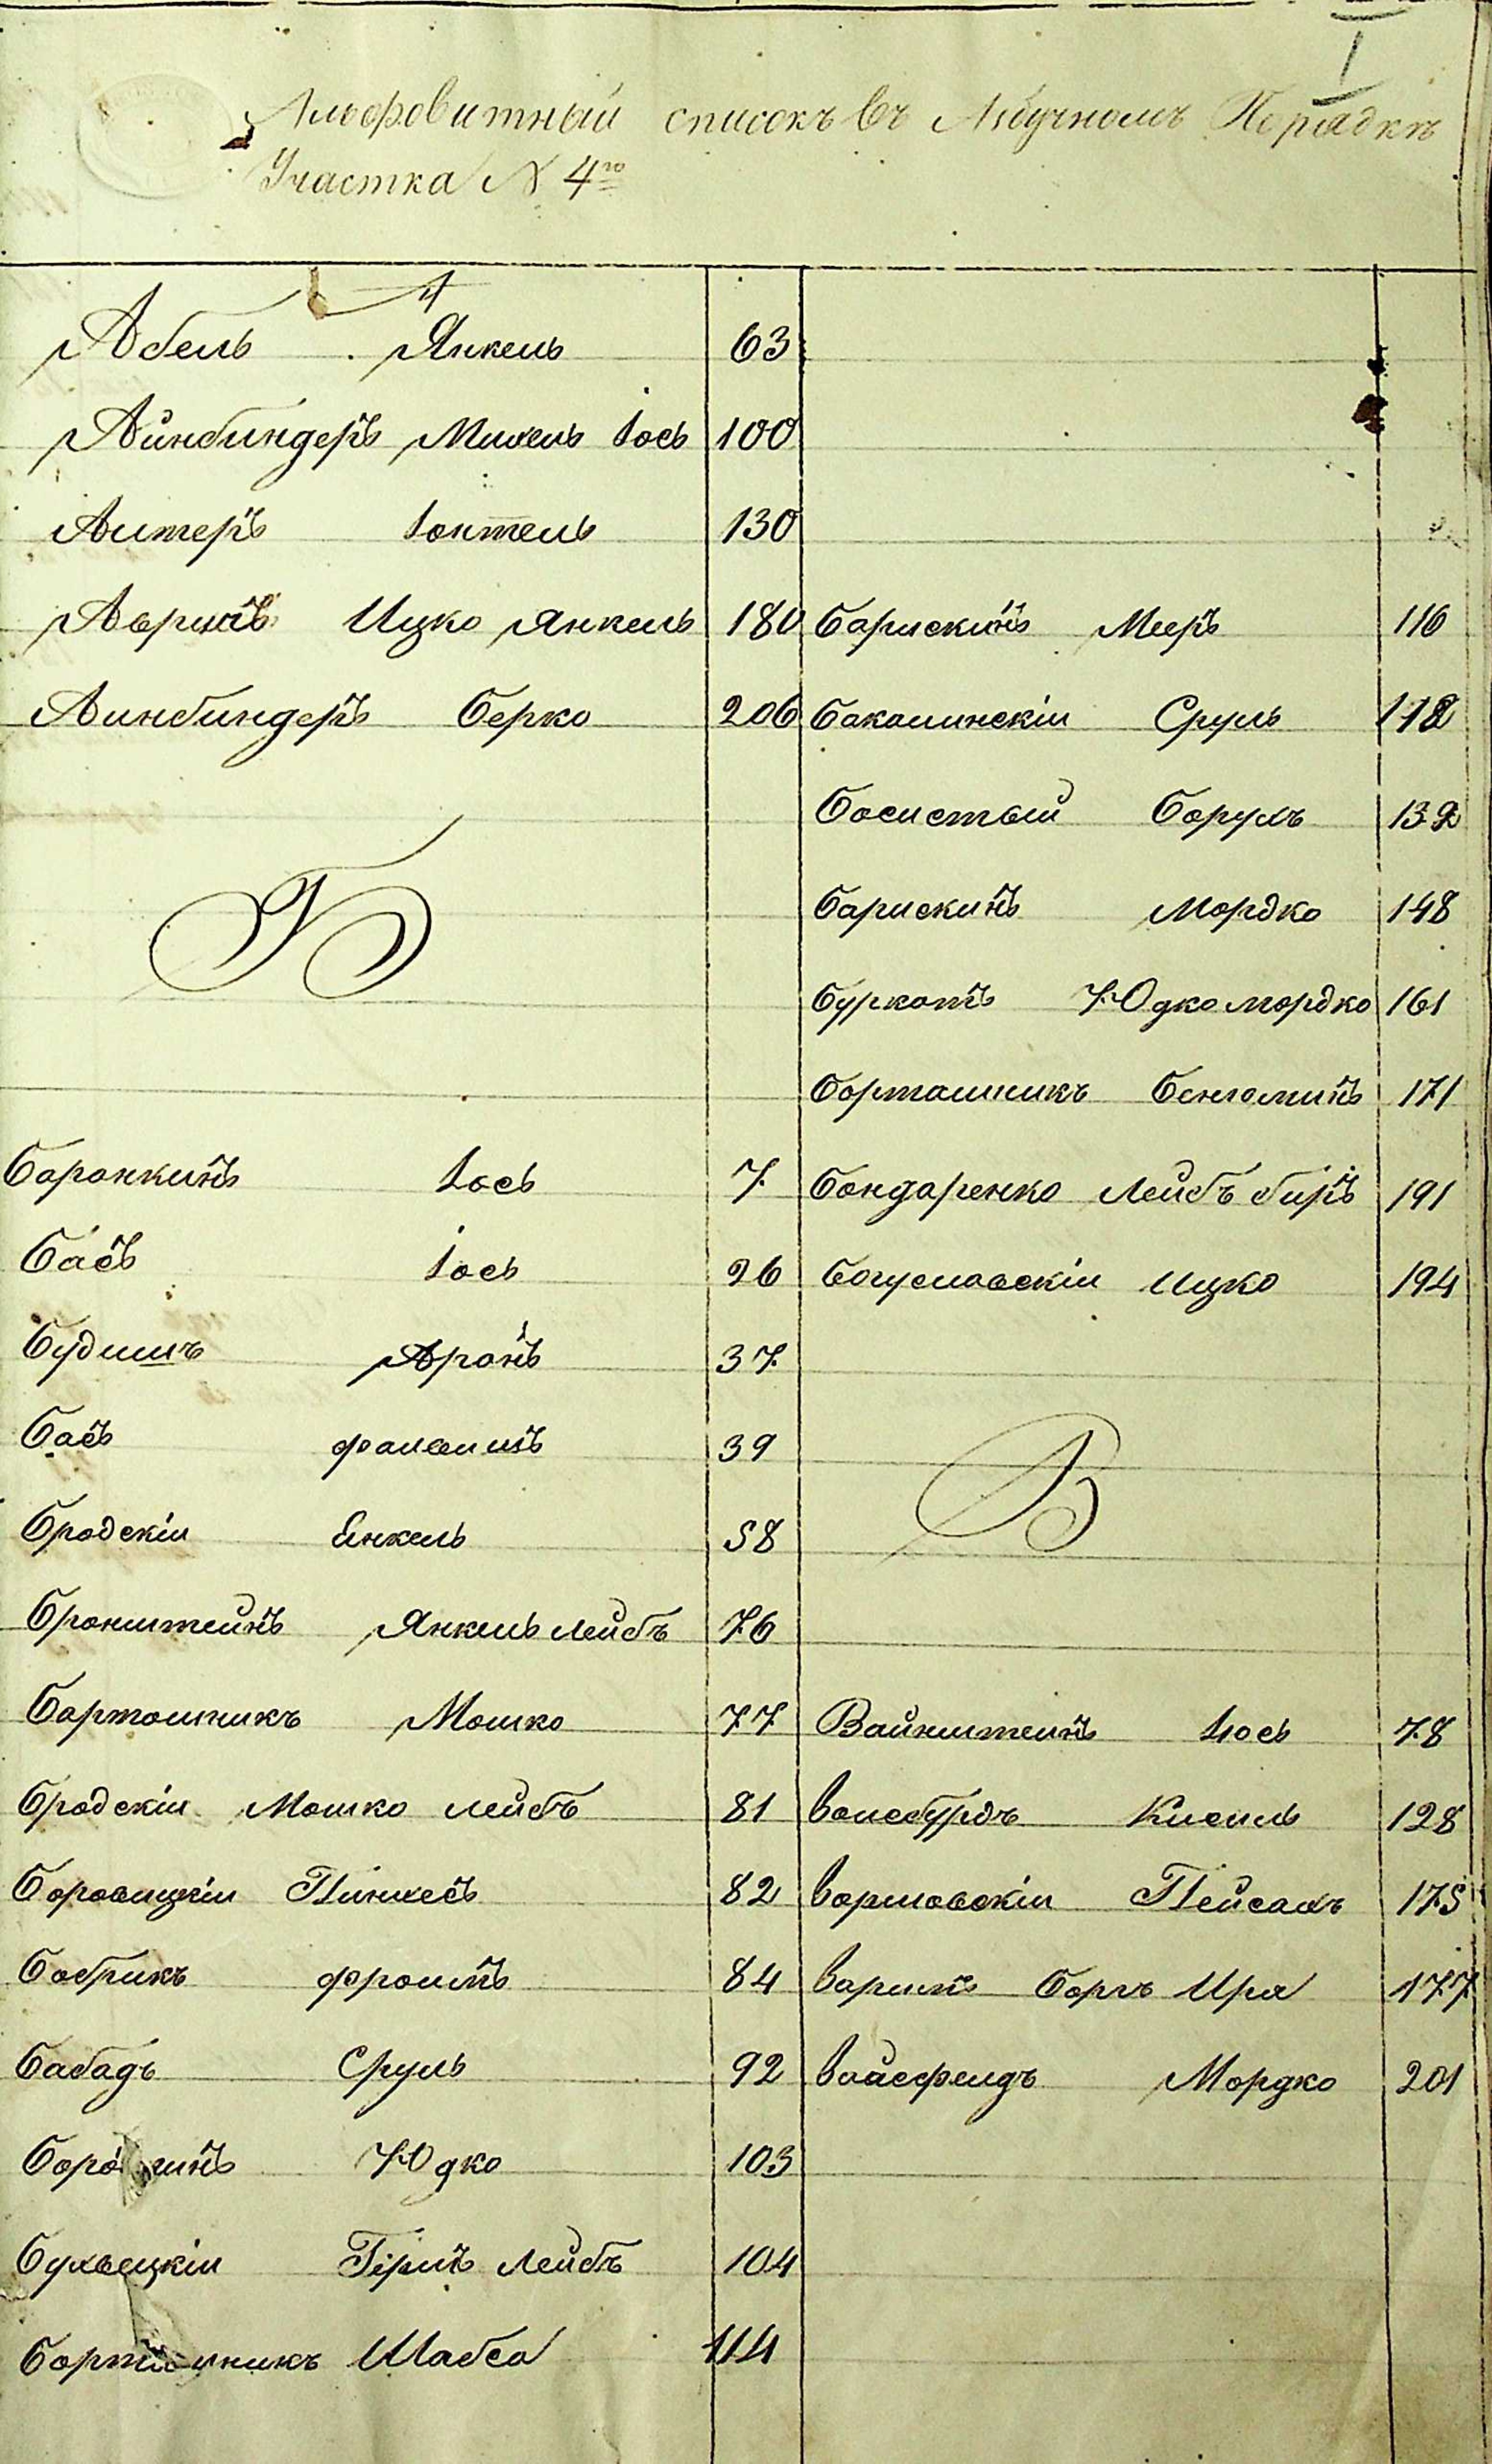 Альфовитный списокъ въ Азбучномъ Порядкѣ
Участка N 4го
А
Абель Янкель 63
Айнбиндеръ Михель Іось 100
Алтеръ Іонтель 130
Ицко Янкель 180
Аинбиндеръ Берко 206
Б
Баранкинъ Іось 7
Басъ Іось 26
Будишъ Аронъ 37
Басъ 39
Бродскіи Енкель 58
Бронштейнъ Янкель Лейбъ 76
Барташникъ Мошко 77
Бродскіи Мошко Лейбъ 81
Боровицкіи Пинхесъ 82
Бобрикъ Фроимъ 84
Бабадъ Сруль 92
Юдко 103
Бухвецкіи Гершъ Лейбъ 104
Шабса 114
Барискинъ Мееръ 116
Бакалинскіи Сруль 118
Басистый Борухъ 132
Барискинъ Мордко 148
Буркатъ Юдко Мордко 161
Барташникъ Беніоминъ 171
Бондаренко Лейбъ Биръ 191
Богуславскіи Ицко 194
В
Вайнштейнъ Іось 78
Вайсбурдъ Кисиль 128
Варшавскіи Пейсахъ 175
177
Вайсфелдъ Мордко 201